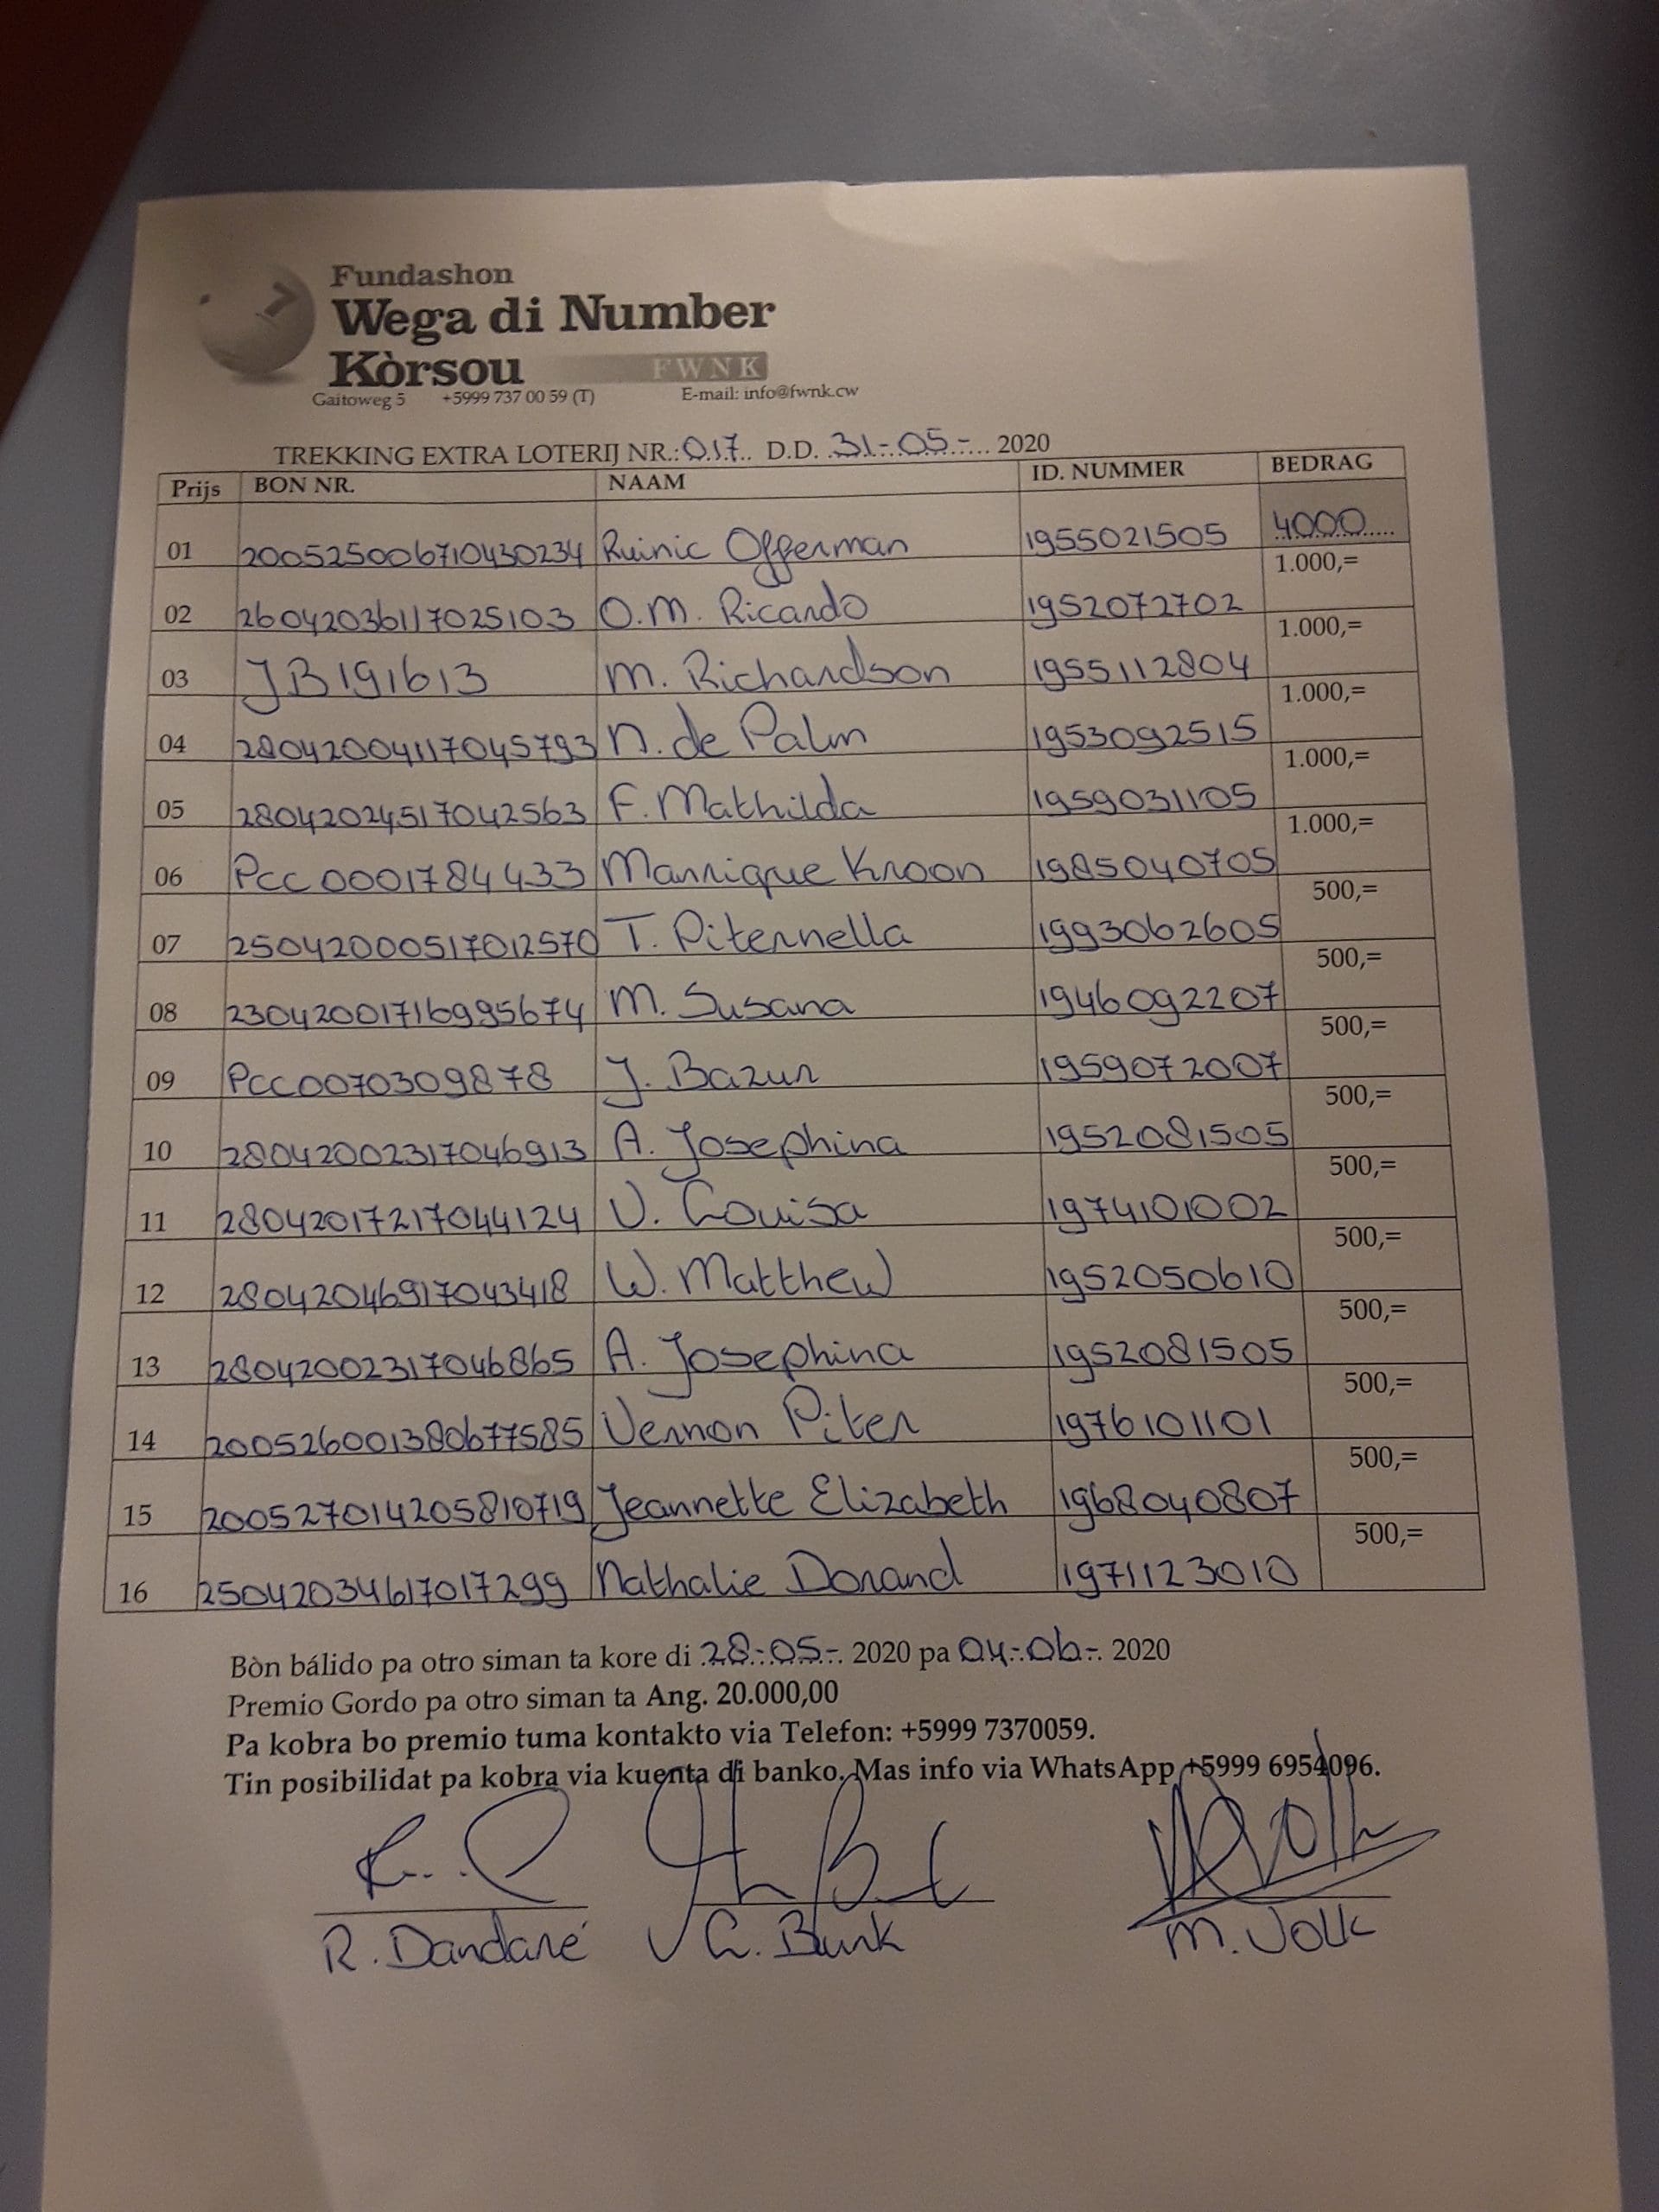 Fundashon
Wega di Number
Kòrsou FWNK
Gaitoweg 5 +5999 737 00 59 (T) E-mail: info@fwnk.cw
TREKKING EXTRA LOTERIJ NR.: 017 D.D. 31-05- 2020
Prijs BON NR. NAAM ID. NUMMER BEDRAG
01 200525006710430234 Ruinic Offerman 1955021505 4000
02 26042036117025103 O.M. Ricardo 1952072702 1.000,=
03 JB191613 M. Richardson 1955112804 1.000,=
04 28042004117045793 N. de Palm 1953092515 1.000,=
05 28042024517042563 F. Mathilda 1959031105 1.000,=
06 PCC0001784433 Manrique Kroon 1985040705 1.000,=
07 25042000517012570 T. Piternella 1993062605 500,=
08 23042001716995674 M. Susana 1946092207 500,=
09 PCC0070309878 J. Bazur 1959072007 500,=
10 28042002317046913 A. Josephina 1952081505 500,=
11 28042017217044124 U. Louisa 1974101002 500,=
12 28042046917043418 W. Matthew 1952050610 500,=
13 28042002317046865 A. Josephina 1952081505 500,=
14 200526001380677585 Vernon Piter 1976101101 500,=
15 200527014205810719 Jeannette Elizabeth 1968040807 500,=
16 25042034617017299 Nathalie Dorand 1971123010 500,=
Bòn bálido pa otro siman ta kore di 28-05- 2020 pa 04-06- 2020
Premio Gordo pa otro siman ta Ang. 20.000,00
Pa kobra bo premio tuma kontakto via Telefon: +5999 7370059.
Tin posibilidat pa kobra via kuenta di banko. Mas info via WhatsApp +5999 6954096.
R. Dandaré G. Bunk M. Volk